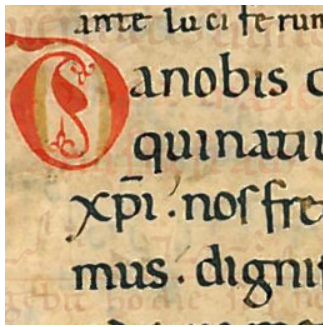 ante luciferum
Da nobis
qui nati
xp̄i. nos fre
mus. digni